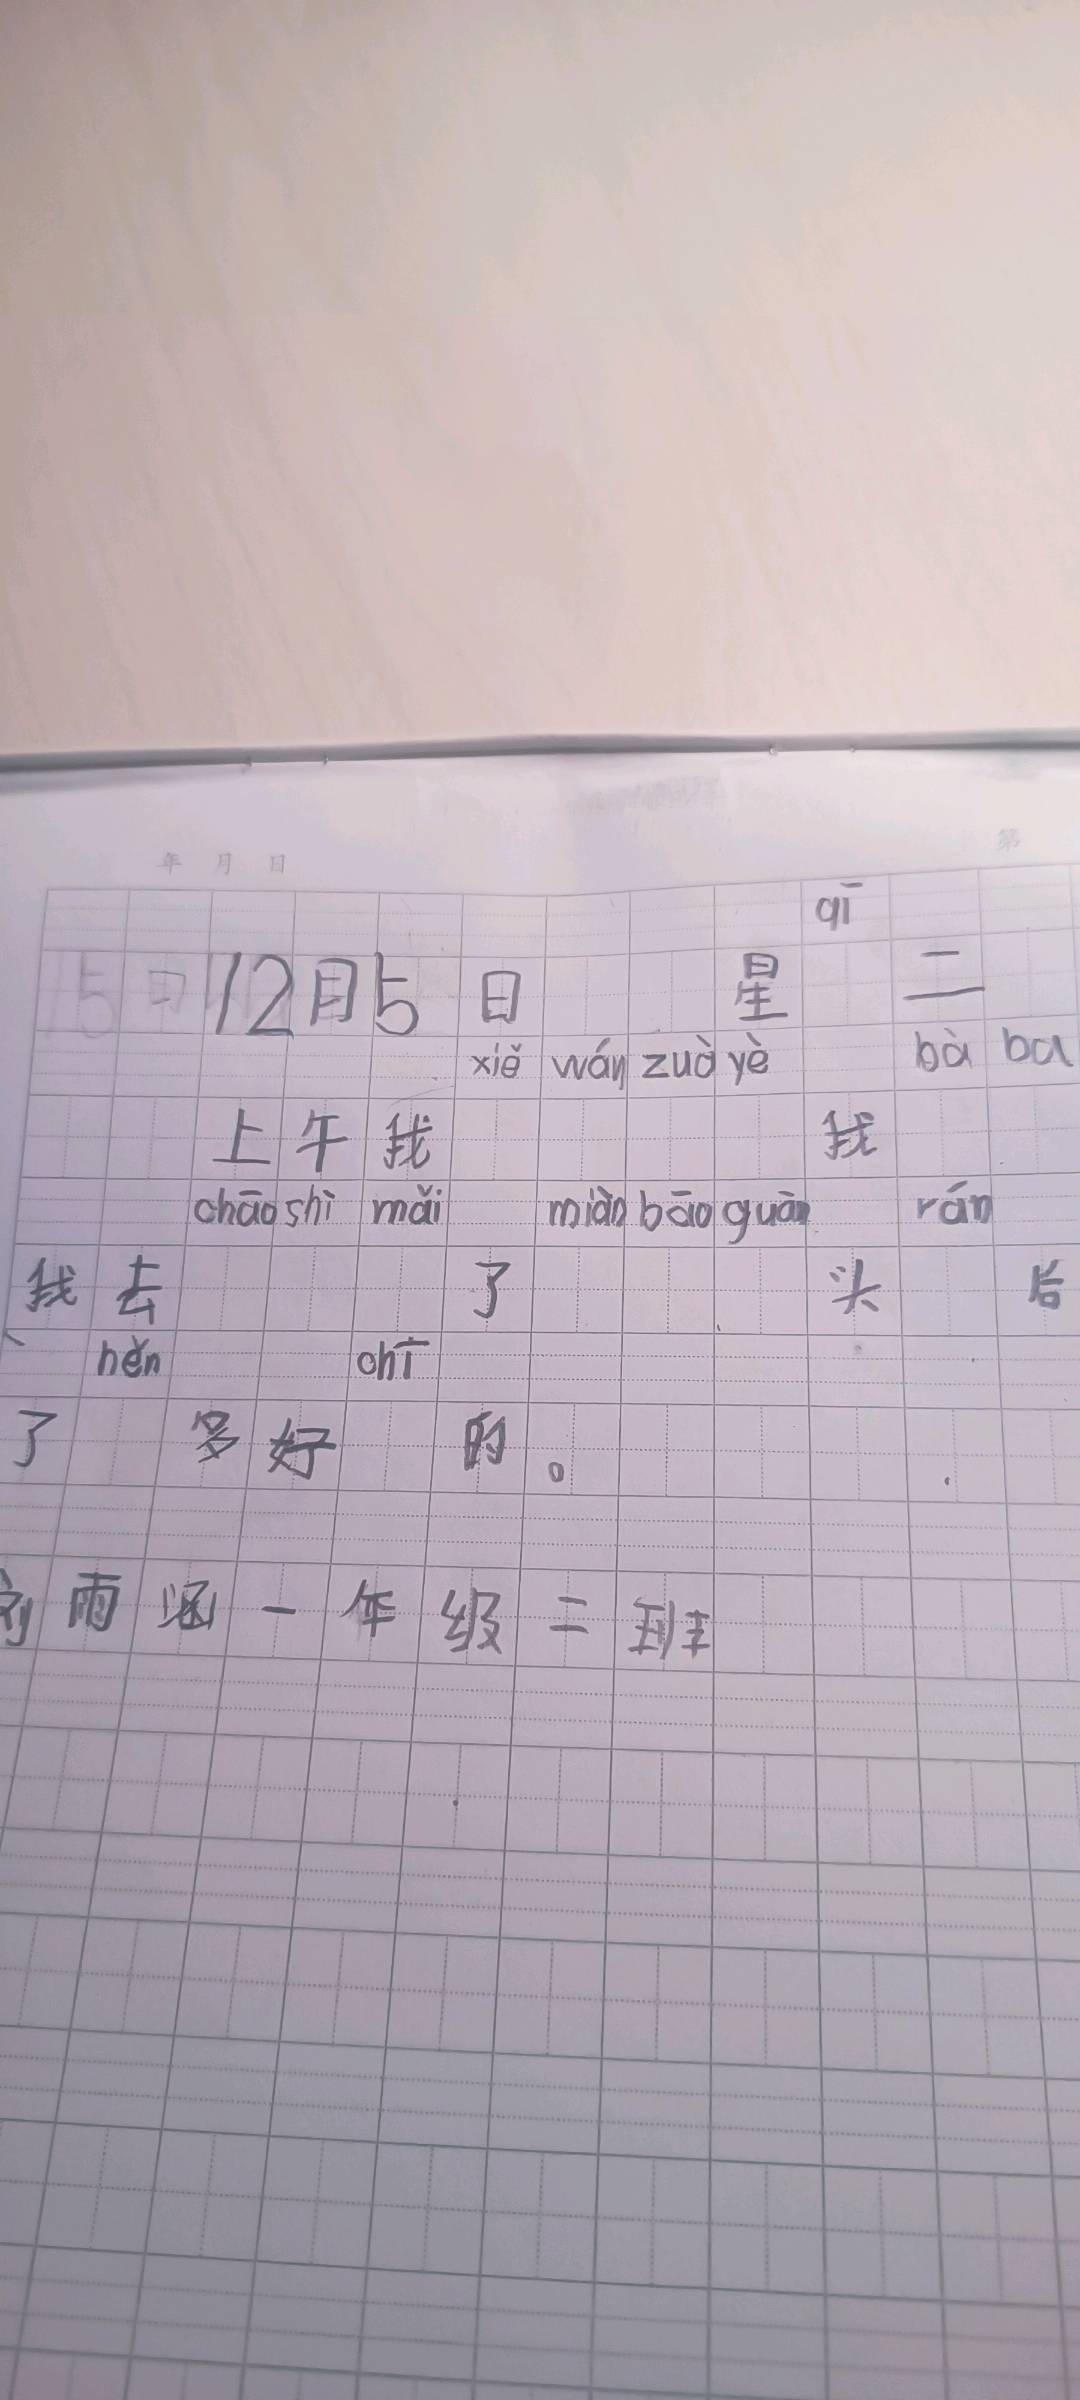 年 月 日 第
qī
12月5日 星 二
xiě wán zuò yè bà ba
上午我 我
chāo shì mǎi miàn bāo guàn rán
我去 了 头 后
hěn chī
了 多好 的。
刘雨涵一年级二班